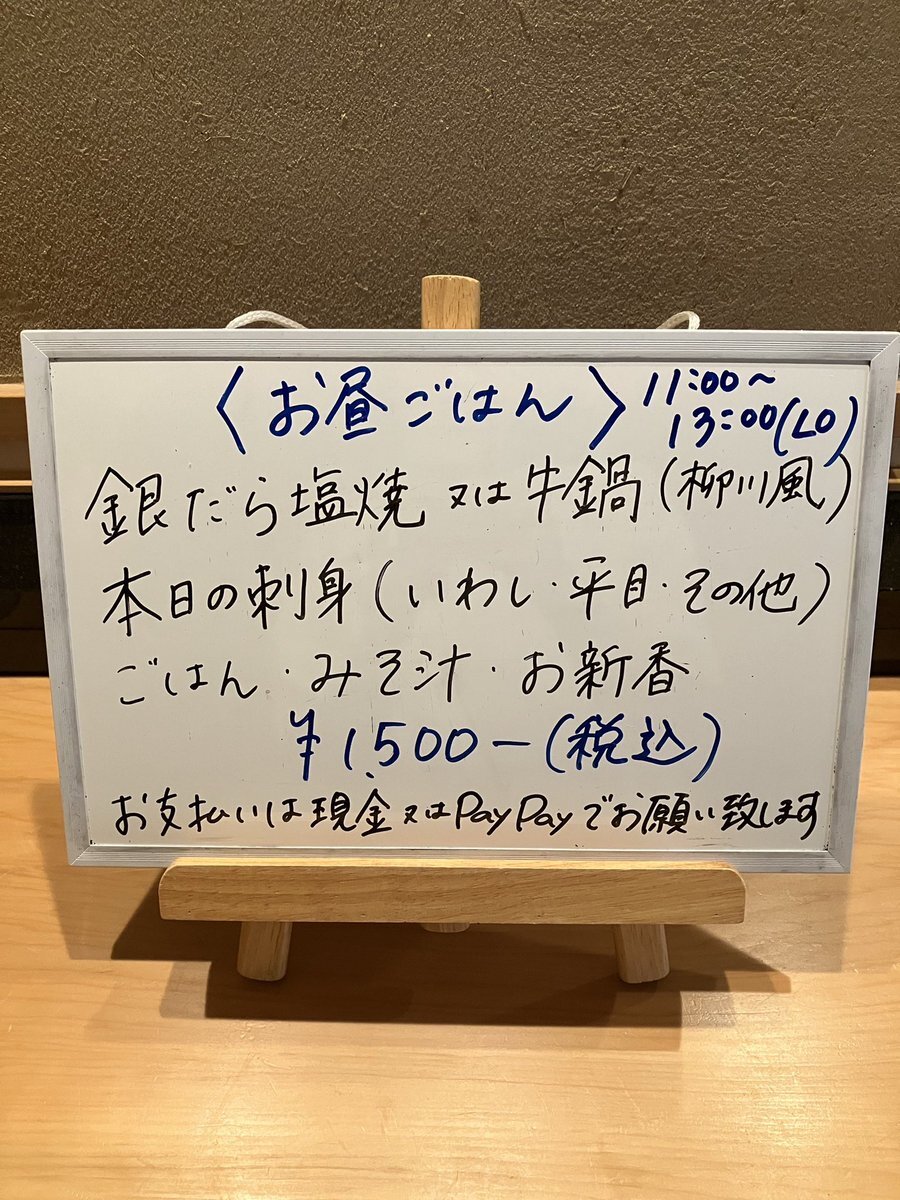 〈お昼ごはん〉 11:00～
13:00(LO)
銀だら塩焼 又は牛鍋(柳川風)
本日の刺身(いわし・平目・その他)
ごはん・みそ汁・お新香
¥1,500-(税込)
お支払いは現金又はPayPayでお願い致します